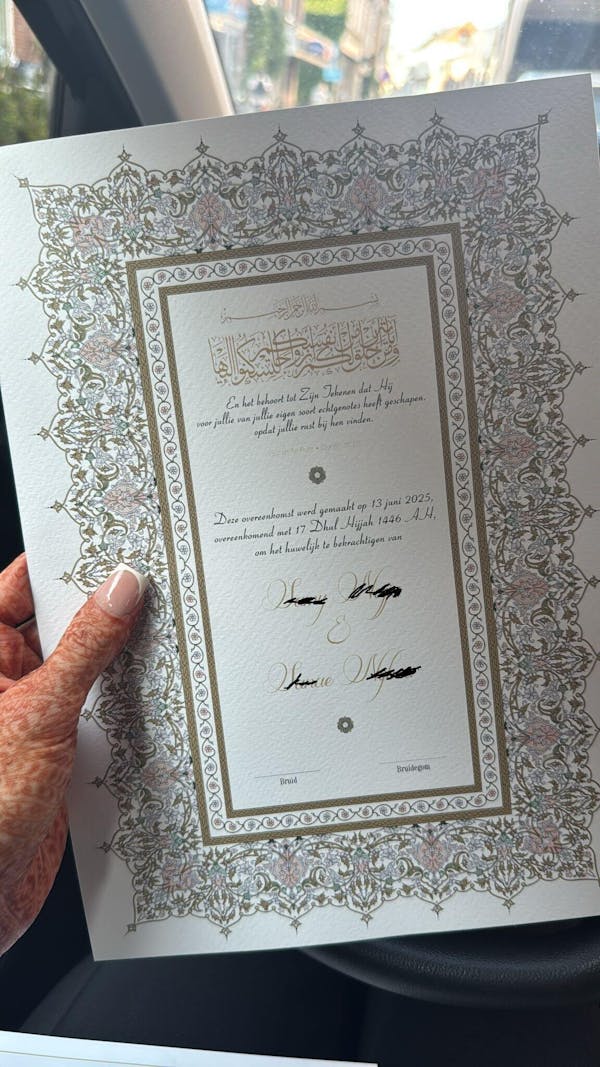 بسم الله الرحمن الرحيم
ومن آياته أن خلق لكم من أنفسكم أزواجا لتسكنوا إليها
En het behoort tot Zijn Tekenen dat Hij
voor jullie van jullie eigen soort echtgenotes heeft geschapen,
opdat jullie rust bij hen vinden.
Deze overeenkomst werd gemaakt op 13 juni 2025,
overeenkomend met 17 Dhul Hijjah 1446 AH,
om het huwelijk te bekrachtigen van
&
Bruid
Bruidegom